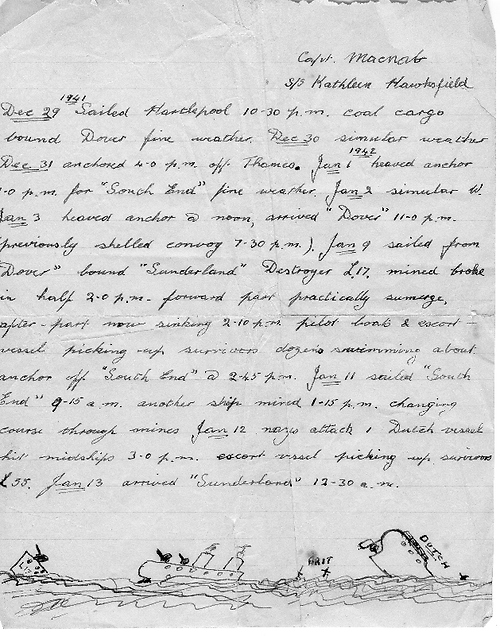 Capt. Macnab
S/S Kathleen Hawksfield
1941
Dec 29 Sailed Hartlepool 10-30 p.m. coal cargo
bound Dover fine weather. Dec 30 simular weather
1942
Dec 31 anchored 4-0 p.m. off Thames. Jan 1 heaved anchor
-0 p.m. for "South End" fine weather. Jan 2 simular W.
Jan 3 heaved anchor @ noon, arrived "Dover" 11-0 p.m.
previously shelled convoy 7-30 p.m.). Jan 9 sailed from
"Dover" bound "Sunderland" Destroyer L.17. mined broke
in half 2-0 p.m. forward part practically sumerge,
after-part now sinking 2-10 p.m. pilot boat & escort-
vessel picking-up survivors dozens swimming about
anchor off "South End" @ 2-45 p.m. Jan 11 sailed "South
End" 9-15 a.m. another ship mined 1-15 p.m. changing
course through mines Jan 12 nazs attack 1 Dutch vessel
hit midships 3-0 p.m. escort vessel picking up surivors
L55. Jan 13 arrived "Sunderland" 12-30 a.m.
L17
BRIT
DUTCH